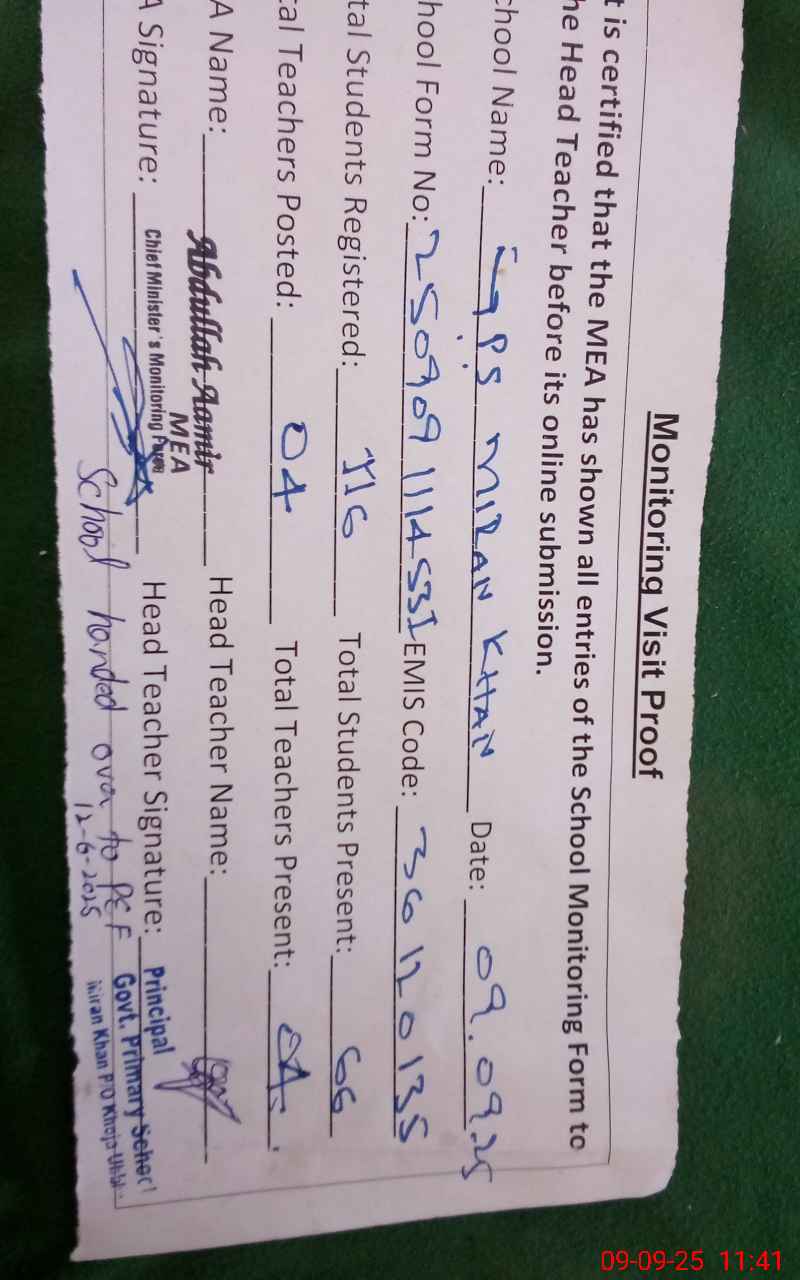 Monitoring Visit Proof
t is certified that the MEA has shown all entries of the School Monitoring Form to
he Head Teacher before its online submission.
chool Name: PS MIRAN KHAN Date: 09.09.25
hool Form No: 250909 1114531 EMIS Code: 36120135
tal Students Registered: 116 Total Students Present: 66
cal Teachers Posted: 04 Total Teachers Present: 04
A Name: Abdullah Aamir Head Teacher Name:
MEA
A Signature: Chief Minister's Monitoring Head Teacher Signature: Principal
Govt. Primary School
Miran Khan P/O Khoja
School handed over to PEF
12-6-2025
09-09-25 11:41